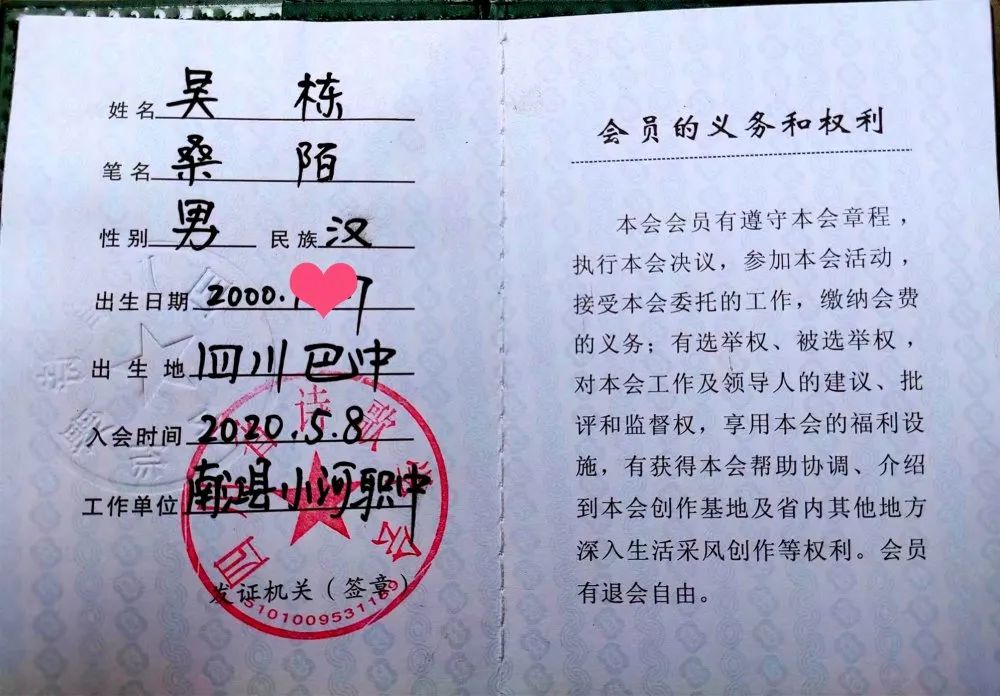 姓名 吴栋
笔名 桑陌
性别 男 民族 汉
出生日期 2000.
出生地 四川巴中
入会时间 2020.5.8
工作单位 南江县小河职中
发证机关（签章）
四川省诗歌学会
5101009531189
会员的义务和权利
本会会员有遵守本会章程，
执行本会决议，参加本会活动，
接受本会委托的工作，缴纳会费
的义务；有选举权、被选举权，
对本会工作及领导人的建议、批
评和监督权，享用本会的福利设
施，有获得本会帮助协调、介绍
到本会创作基地及省内其他地方
深入生活采风创作等权利。会员
有退会自由。